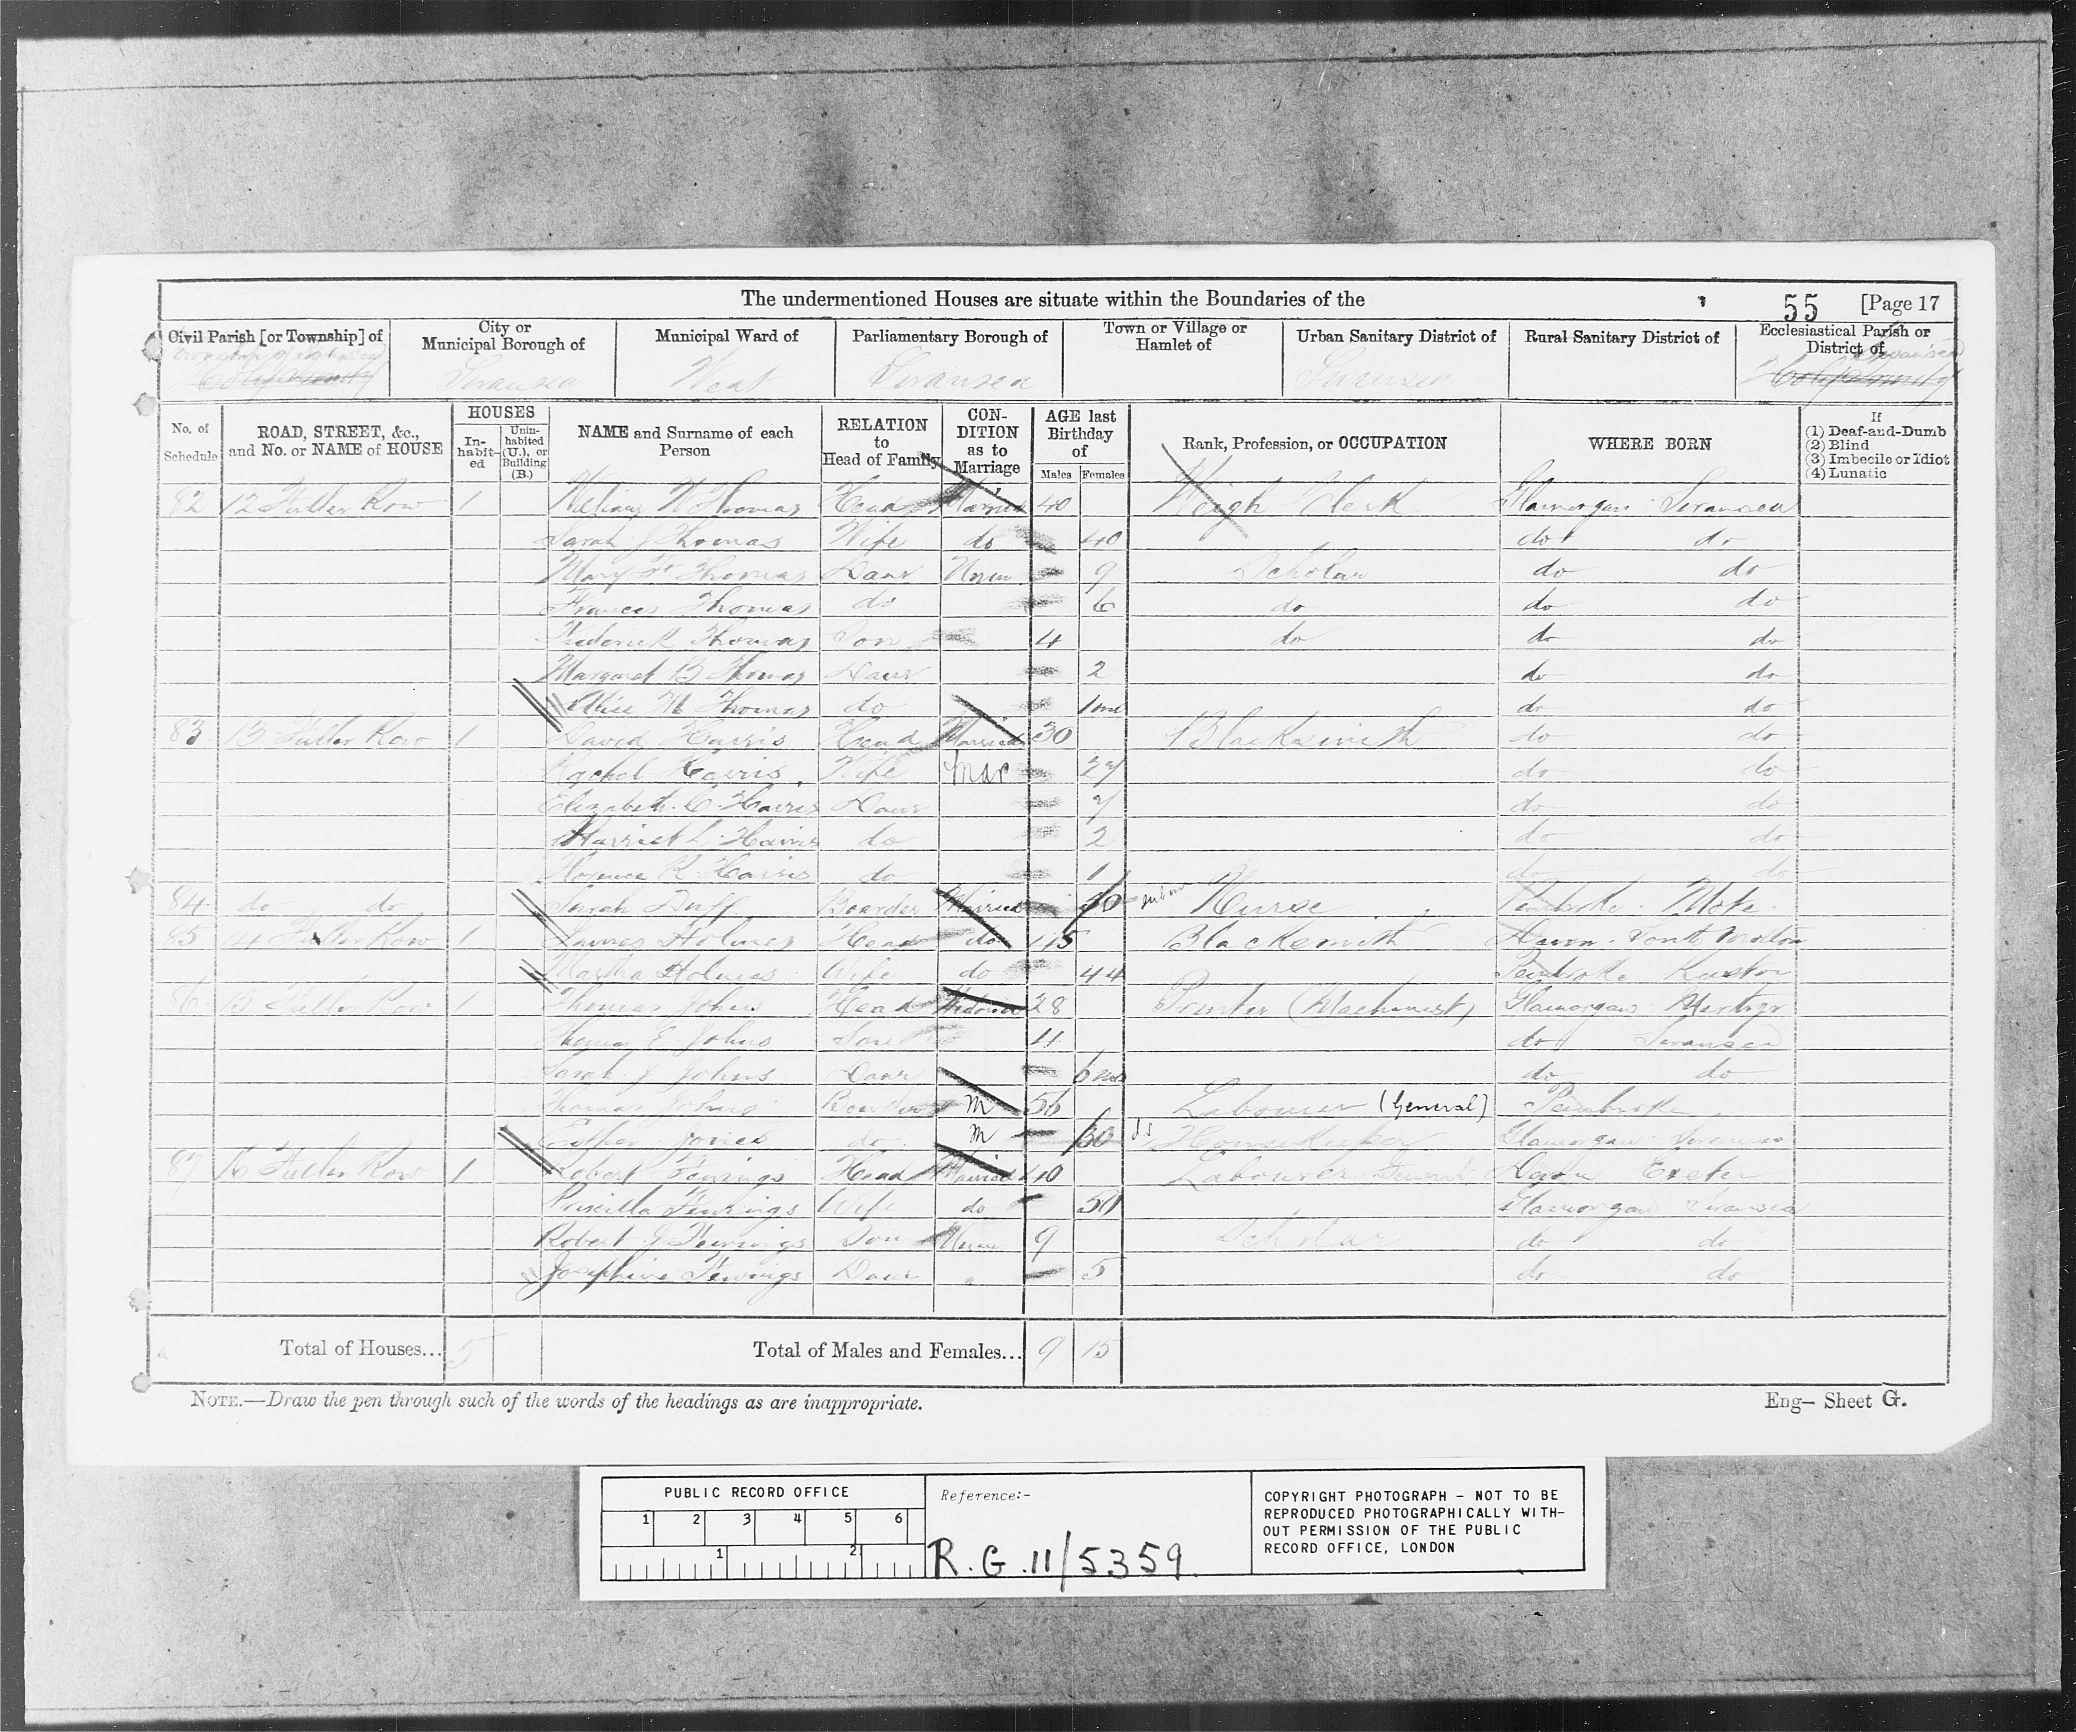 The undermentioned Houses are situate within the Boundaries of the 55 [Page 17
Civil Parish [or Township] of City or Municipal Borough of Municipal Ward of Parliamentary Borough of Town or Village or Hamlet of Urban Sanitary District of Rural Sanitary District of Ecclesiastical Parish or District of
Swansea West Swansea Swansea Swansea
No. of Schedule ROAD, STREET, &c., and No. or NAME of HOUSE HOUSES Inhabited Uninhabited (U.), or Building (B.) NAME and Surname of each Person RELATION to Head of Family CONDITION as to Marriage AGE last Birthday of Males Females Rank, Profession, or OCCUPATION WHERE BORN If (1) Deaf-and-Dumb (2) Blind (3) Imbecile or Idiot (4) Lunatic
82 12 Fuller Row 1 William W Thomas Head Married 40 Weigh Clerk Glamorgan Swansea
Sarah J Thomas Wife do 40 do do
Mary Thomas Daur Unm 9 Scholar do do
Frances Thomas do 6 do do do
Frederick Thomas Son 4 do do do
Margaret B Thomas Daur 2 do do
Alice M Thomas do 1 mo do do
83 13 Fuller Row 1 David Harris Head Married 30 Blacksmith do do
Rachel Harris Wife Mar 27 do do
Elizabeth C. Harris Daur 7 do do
Harriet L. Harris do 2 do do
Florence R Harris do 1 do do
84 do do Sarah Duff Boarder Married Nurse Pembroke
85 14 Fuller Row 1 James Holmes Head do 45 Blacksmith Devon
Martha Holmes Wife do 44 Pembroke
86 15 Fuller Row 1 Thomas Johns Head Widower 28 Printer (Machinist) Glamorgan Merthyr
Thomas E Johns Son do Swansea
Sarah J Johns Daur 6 mos do do
Thomas Johns Boarder M 56 Labourer (General) Pembroke
Esther Jones do M 30 Housekeeper Glamorgan Swansea
87 16 Fuller Row 1 Robert Head Married 40 Labourer Devon Exeter
Priscilla Wife do 50 Glamorgan Swansea
Robert G Son Unm 9 Scholar do do
Josephine Daur " 5 do do
Total of Houses... 5 Total of Males and Females... 9 15
NOTE.—Draw the pen through such of the words of the headings as are inappropriate. Eng— Sheet G.
PUBLIC RECORD OFFICE
1 2 3 4 5 6
1 2
Reference:-
R.G. 11/5359
COPYRIGHT PHOTOGRAPH - NOT TO BE
REPRODUCED PHOTOGRAPHICALLY WITH-
OUT PERMISSION OF THE PUBLIC
RECORD OFFICE, LONDON